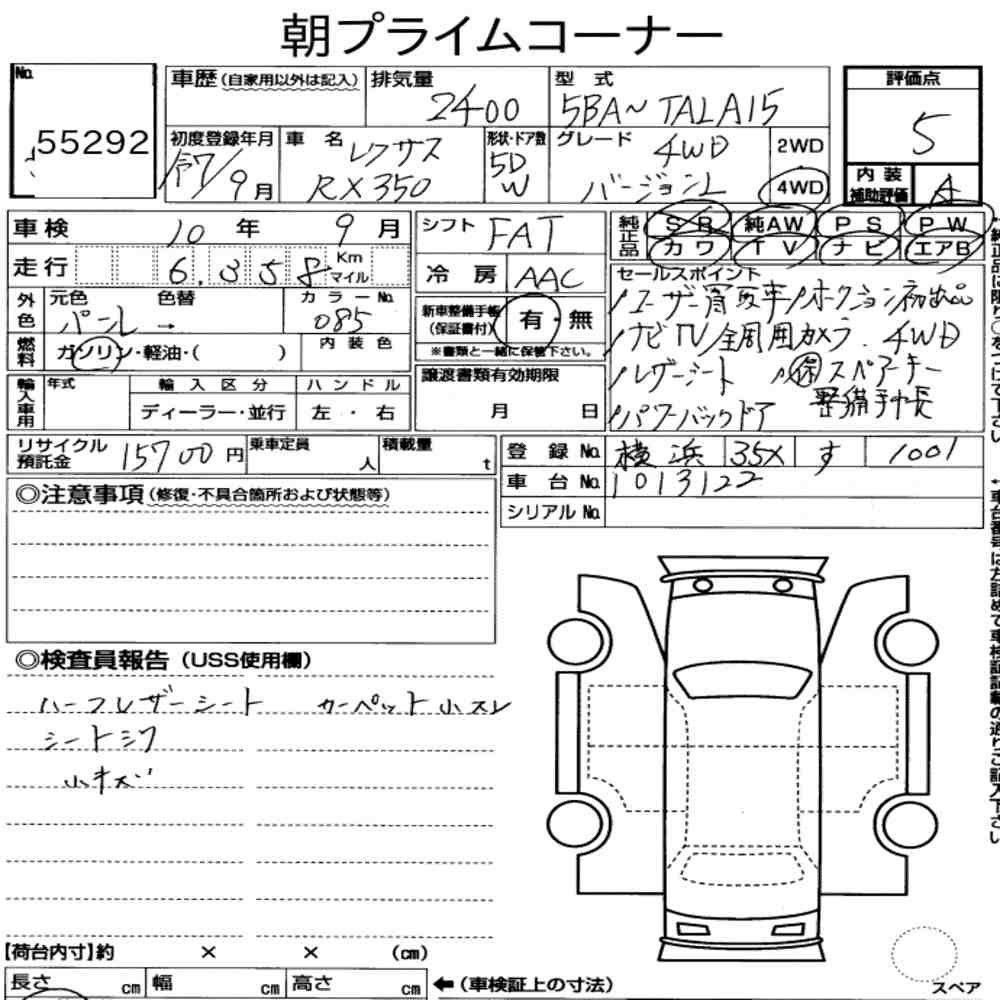 朝プライムコーナー
No.
55292
車歴(自家用以外は記入)
排気量
2400
型式
5BA~TALA15
評価点
5
初度登録年月
R7/9月
車名
レクサス
RX350
形状・ドア数
5D
W
グレード
4WD
バージョンL
2WD
4WD
内装
補助評価
A
車検
10年
9月
シフト
FAT
純正品
SR
純AW
PS
PW
カワ
TV
ナビ
エアB
走行
6,358
Km
マイル
冷房
AAC
セールスポイント
ユーザー買取車/オークション初出品
ナビTV/全周囲カメラ.4WD
レザーシート
保
スペアキー
整備手帳
パワーバックドア
外色
元色
色替
カラーNo.
パール
→
085
新車整備手帳
(保証書付)
有・無
※書類と一緒に保管下さい。
燃料
ガソリン・軽油・( )
内装色
輸入車用
年式
輸入区分
ハンドル
ディーラー・並行
左・右
譲渡書類有効期限
月 日
リサイクル
預託金
15700円
乗車定員
人
積載量
t
登録No.
横浜
35X
す
1001
車台No.
1013122
シリアルNo.
◎注意事項(修復・不具合箇所および状態等)
◎検査員報告(USS使用欄)
ハーフレザーシート
カーペット小スレ
シートシワ
小キズ
【荷台内寸】約 × × (cm)
長さ cm
幅 cm
高さ cm
←(車検証上の寸法)
スペア